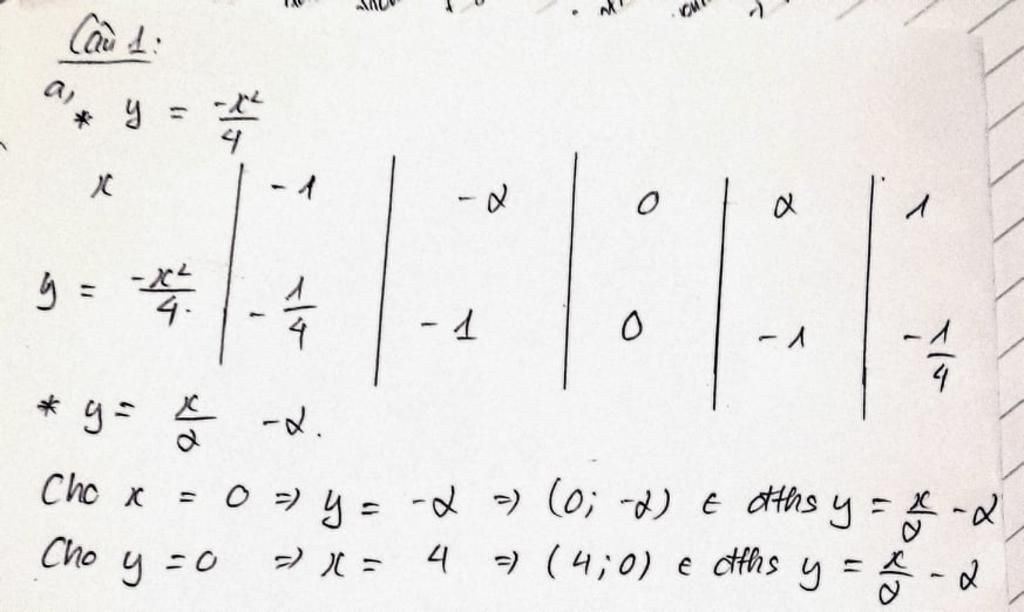 Câu 1:
a, * y = -x²/4
x | -1 | -2 | 0 | 2 | 1
y = -x²/4 | -1/4 | -1 | 0 | -1 | -1/4
* y = x/2 -2.
Cho x = 0 => y = -2 => (0; -2) ∈ đths y = x/2 -2
Cho y = 0 => x = 4 => (4;0) ∈ đths y = x/2 - 2